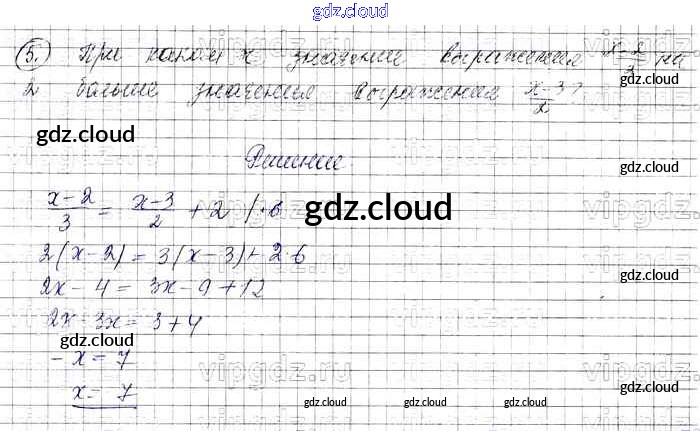 gdz.cloud
5. При каком x значение выражения \frac{x-2}{3} на
2 больше значения выражения \frac{x-3}{2}?
gdz.cloud gdz.cloud
Решение.
\frac{x-2}{3} = \frac{x-3}{2} + 2 /·6 gdz.cloud
2(x-2) = 3(x-3)+ 2·6
2x - 4 = 3x - 9 + 12
2x - 3x = 3 + 4
gdz.cloud gdz.cloud
- x = 7
x = - 7
gdz.cloud gdz.cloud gdz.cloud gdz.cloud